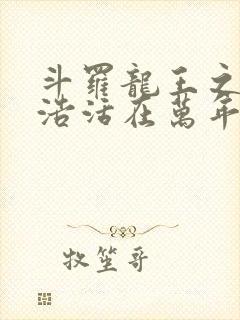 斗羅龍王之
浩活在萬年
牧笙哥